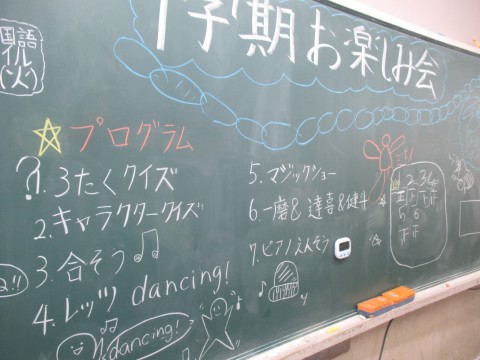 1学期お楽しみ会
国語
(火)
プログラム
1. 3たくクイズ
2. キャラクタークイズ
3. 合そう
4. レッツ dancing!
dancing!
5. マジックショー
6. 一磨&達喜&健斗
7. ピアノえんそう
1 2 3 4
正
5 6
正 正